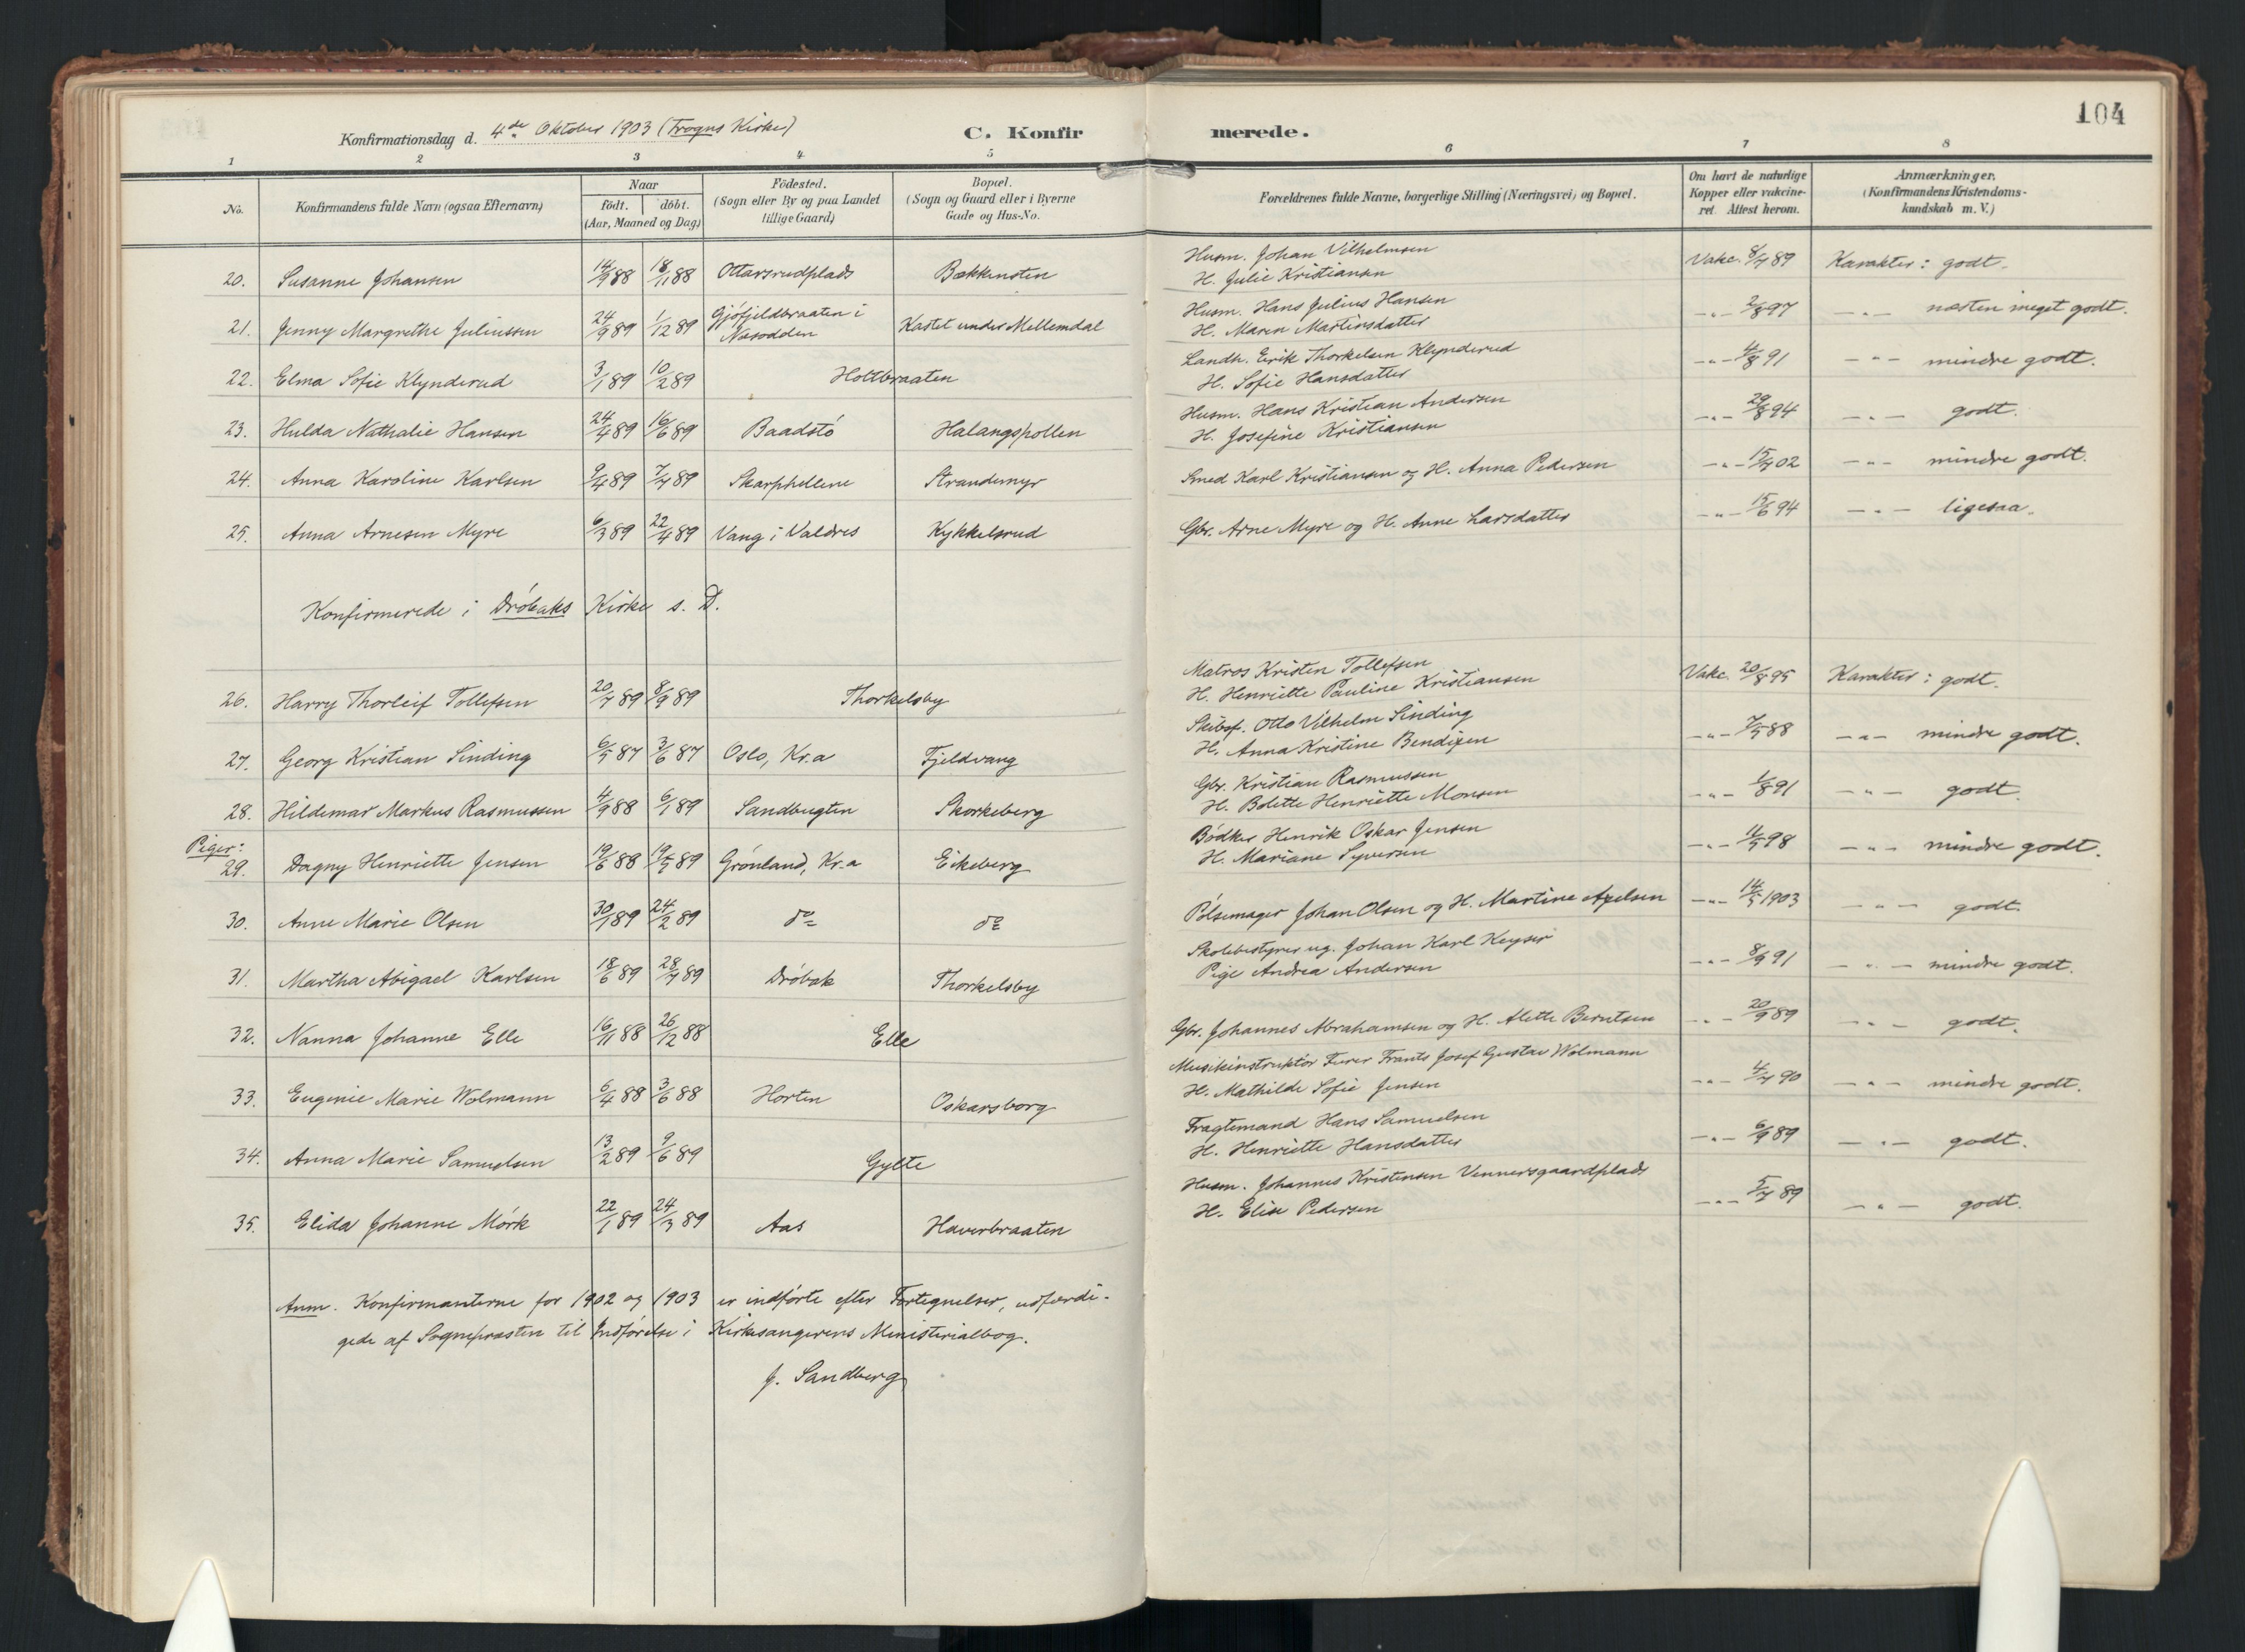 104
Konfirmationsdag d. 4de Oktober 1903 (Frogns Kirke) C. Konfirmerede.
1 2 3 4 5 6 7 8
No. | Konfirmandens fulde Navn (ogsaa Efternavn) | Naar födt. döbt. (Aar, Maaned og Dag) | Födested. (Sogn eller By og paa Landet tillige Gaard) | Bopæl. (Sogn og Gaard eller i Byerne Gade og Hus-No. | Forældrenes fulde Navne, borgerlige Stilling (Næringsvei) og Bopæl. | Om havt de naturlige Kopper eller vakcineret. Attest herom. | Anmærkninger. (Konfirmandens Kristendomskundskab m. V.)
20. Susanne Johansen 14/9 88 18/11 88 Ottarsrudplads Bækkensten Husm. Johan Vilhelmsen H. Julie Kristiansen Vakc. 8/7 89 Karakter: godt.
21. Jenny Margrethe Juliussen 24/9 89 1/12 89 Gjöfjeldbraaten i Næsodden Kastet under Mellemdal Husm. Hans Julius Hansen H. Maren Martinsdatter -"- 2/8 97 -"- næsten meget godt.
22. Elma Sofie Klynderud 3/1 89 10/2 89 Holtbraaten Landh. Erik Thorkelsen Klynderud H. Sofie Hansdatter -"- 4/8 91 -"- mindre godt.
23. Hulda Nathalie Hansen 24/4 89 16/6 89 Baadstö Halangspollen Husm. Hans Kristian Andersen H. Josefine Kristiansen -"- 29/8 94 -"- godt.
24. Anna Karoline Karlsen 9/4 89 7/7 89 Skarphellene Strandemyr Smed Karl Kristiansen og H. Anna Pedersen -"- 15/7 02 -"- mindre godt.
25. Anna Arnesen Myre 6/3 89 22/4 89 Vang i Valdres Kykkelsrud Gbr. Arne Myre og H. Anne Larsdatter -"- 15/6 94 -"- ligesaa.
Konfirmerede i Dröbaks Kirke s. D.
26. Harry Thorleif Tollefsen 20/7 89 8/9 89 Thorkelsby Matros Kristen Tollefsen H. Henriette Pauline Kristiansen Vakc. 20/8 95 Karakter: godt.
27. Georg Kristian Sinding 6/5 87 3/6 87 Oslo, Kr.a Fjeldvang Skibsf. Otto Vilhelm Sinding H. Anna Kristine Bendixen -"- 7/5 88 -"- mindre godt.
28. Hildemar Markus Rasmussen 4/9 88 6/1 89 Sandbugten Skorkeberg Gbr. Kristian Rasmussen H. Bolette Henriette Monsen -"- 1/8 91 -"- godt.
Piger:
29. Dagny Henriette Jensen 19/6 88 19/5 89 Grönland, Kr.a Eikeberg Bödker Henrik Oskar Jensen H. Mariane Syversen -"- 11/5 98 -"- mindre godt.
30. Anne Marie Olsen 30/1 89 24/2 89 do do Pölsemager Johan Olsen og H. Martine Axelsen -"- 14/5 1903 -"- godt.
31. Martha Abigael Karlsen 18/6 89 28/7 89 Dröbak Thorkelsby Skolebestyrer ug. Johan Karl Keyser Pige Andrea Andersen -"- 8/9 91 -"- mindre godt.
32. Nanna Johanne Elle 16/11 88 26/12 88 Elle Gbr. Johannes Abrahamsen og H. Alette Berntsen -"- 20/9 89 -"- godt.
33. Eugenie Marie Wolmann 6/4 88 3/6 88 Horten Oskarsborg Musikinstruktör Furer Frants Josef Gustav Wolmann H. Mathilde Sofie Jensen -"- 4/7 90 -"- mindre godt.
34. Anna Marie Samuelsen 13/2 89 9/6 89 Gylte Fragtemand Hans Samuelsen H. Henriette Hansdatter -"- 6/9 89 -"- godt.
35. Elida Johanne Mörk 22/1 89 24/3 89 Aas Haverbraaten Husm. Johannes Kristensen Vennersgaardplads H. Elise Pedersen -"- 5/7 89 -"- godt.
Anm. Konfirmanterne for 1902 og 1903 er indförte efter Fortegnelser, udfærdi-
gede af Sognepræsten til Indförelse i Kirkesangerens Ministerialbog.
J. Sandberg